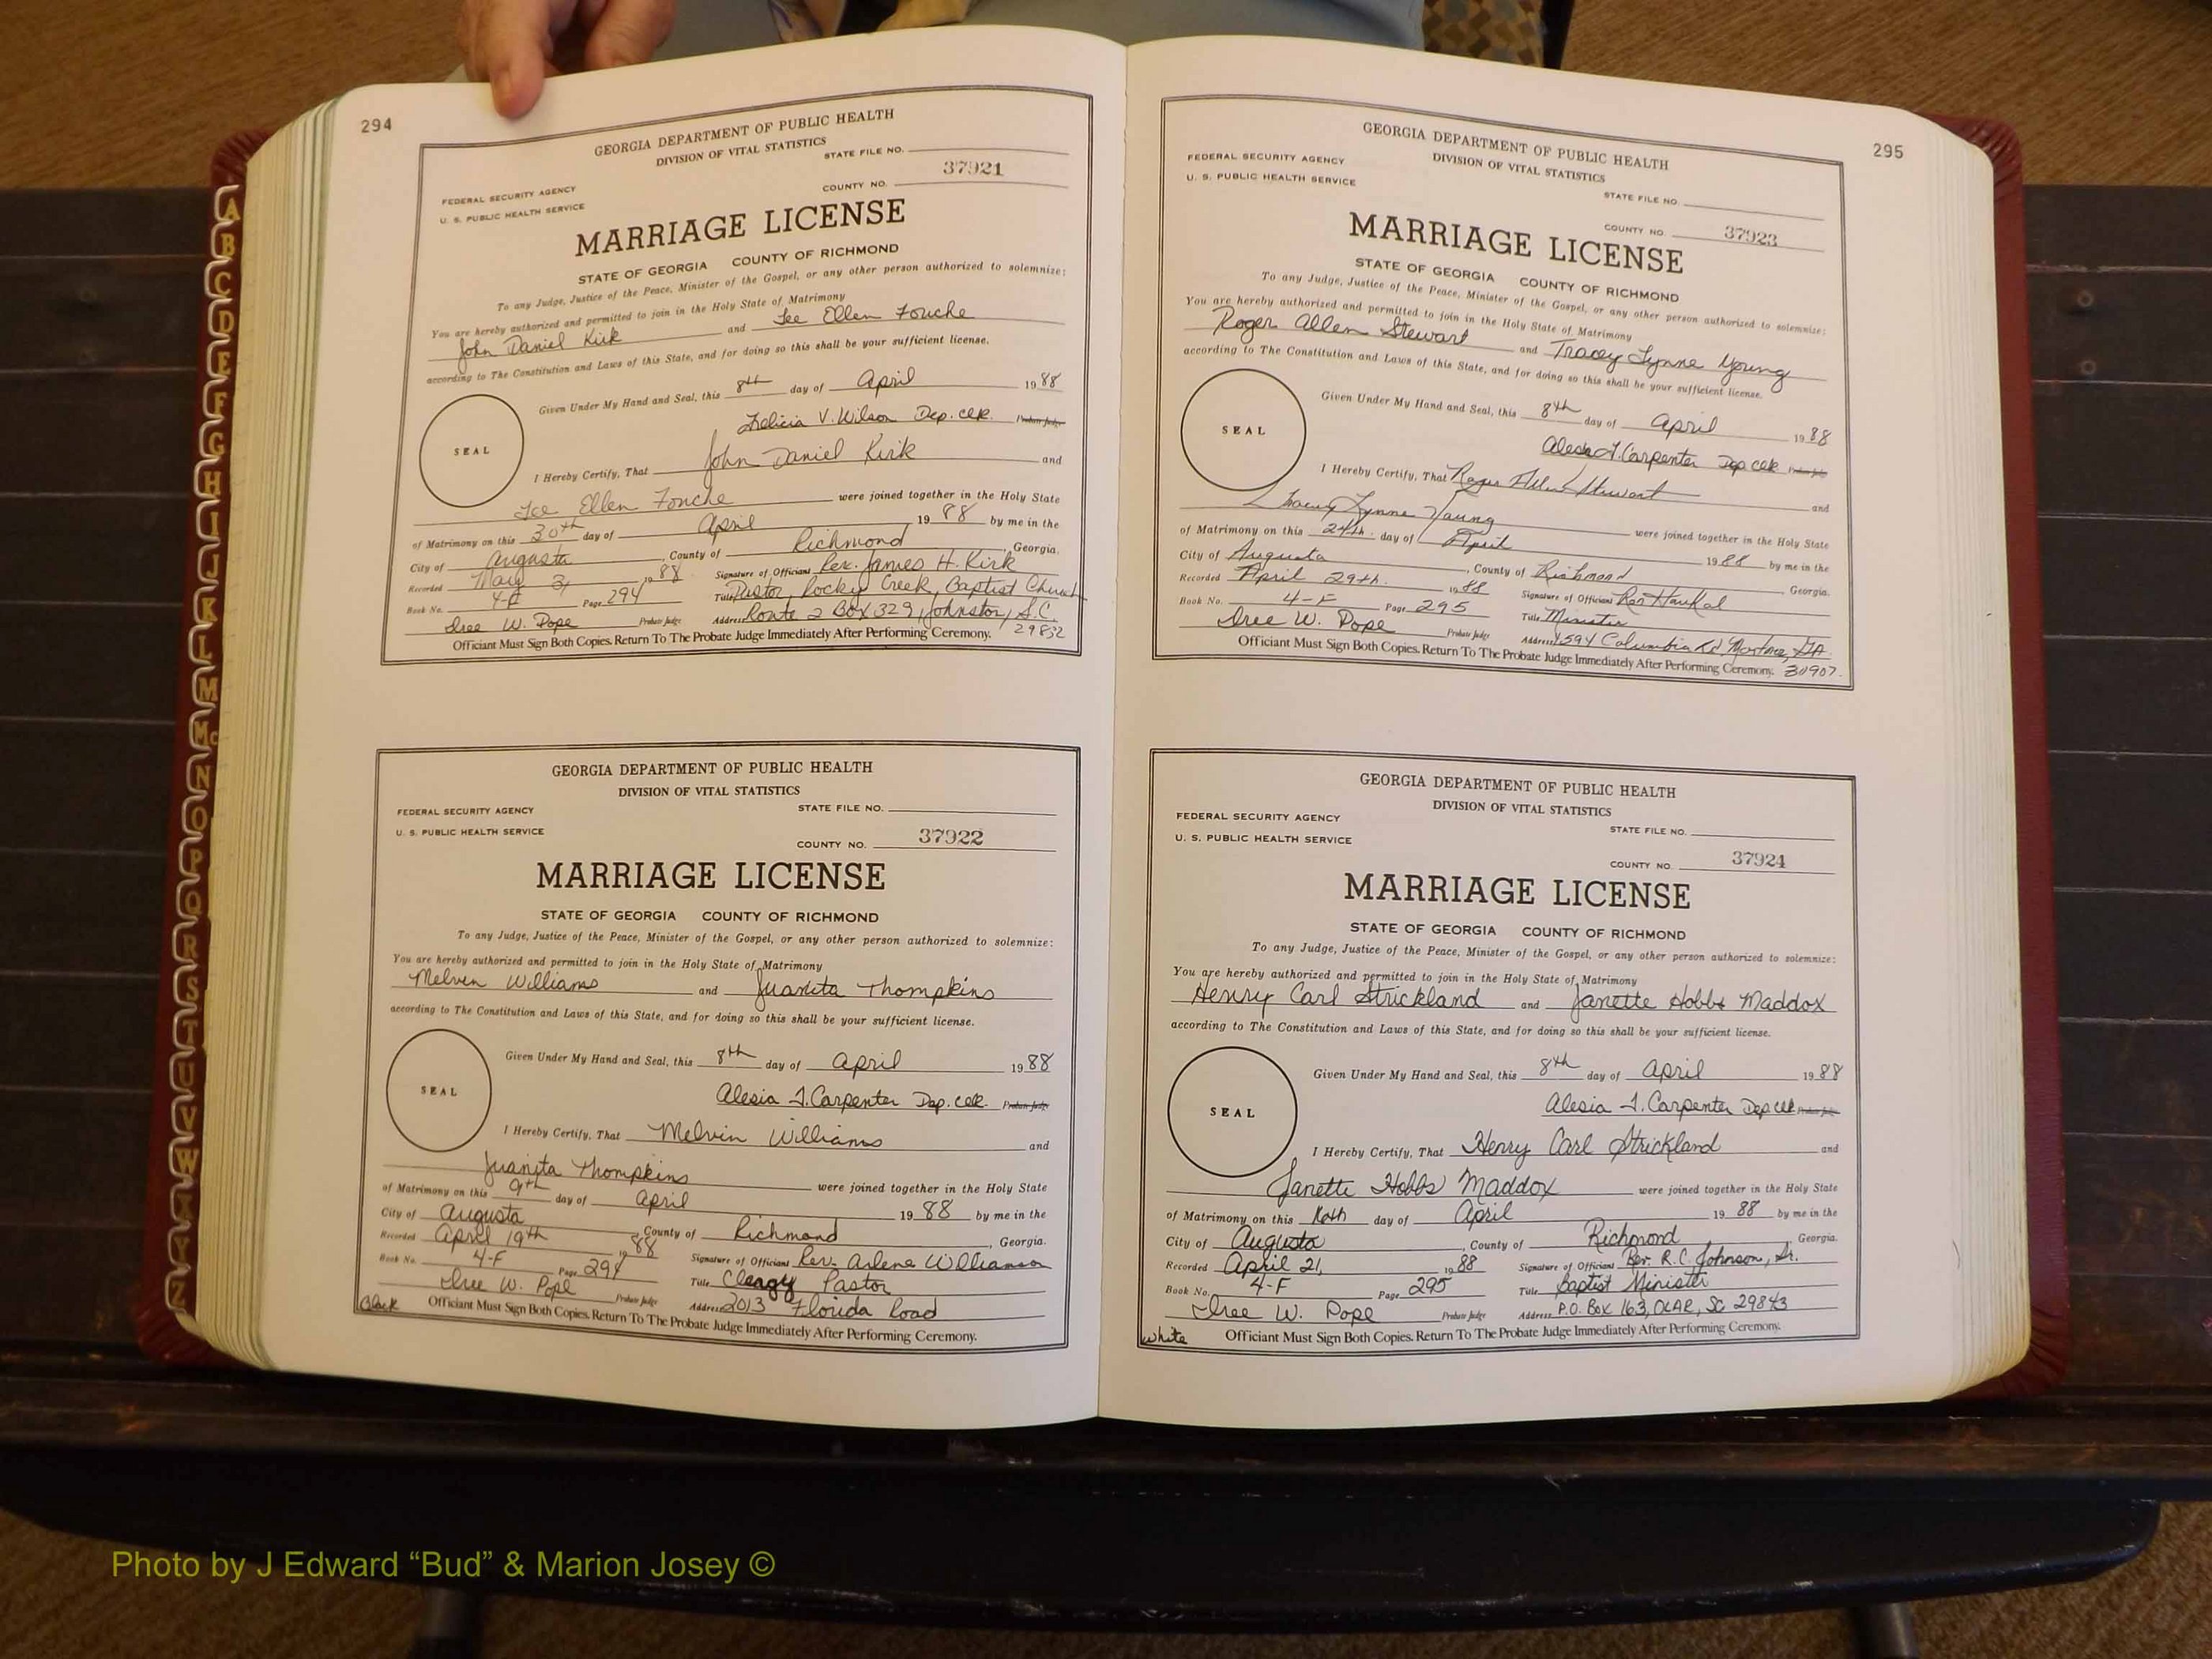 294
GEORGIA DEPARTMENT OF PUBLIC HEALTH
DIVISION OF VITAL STATISTICS
STATE FILE NO.
FEDERAL SECURITY AGENCY
COUNTY NO. 37921
U. S. PUBLIC HEALTH SERVICE
MARRIAGE LICENSE
STATE OF GEORGIA COUNTY OF RICHMOND
To any Judge, Justice of the Peace, Minister of the Gospel, or any other person authorized to solemnize:
You are hereby authorized and permitted to join in the Holy State of Matrimony
John Daniel Kirk and Lee Ellen Fouche
according to The Constitution and Laws of this State, and for doing so this shall be your sufficient license.
Given Under My Hand and Seal, this 8th day of April 1988
Felicia V. Wilson Dep. Clk. Probate Judge
SEAL
I Hereby Certify, That John Daniel Kirk and
Lee Ellen Fouche were joined together in the Holy State
of Matrimony on this 30th day of April 1988 by me in the
City of Augusta, County of Richmond, Georgia.
Recorded May 3, 1988 Signature of Officiant Rev. James H. Kirk
Book No. 4-F Page 294 Title Pastor, Rocky Creek, Baptist Church
Iree W. Pope Probate Judge Address Route 2 Box 329, Johnston, S.C. 29832
Officiant Must Sign Both Copies. Return To The Probate Judge Immediately After Performing Ceremony.
GEORGIA DEPARTMENT OF PUBLIC HEALTH
DIVISION OF VITAL STATISTICS
FEDERAL SECURITY AGENCY STATE FILE NO.
U. S. PUBLIC HEALTH SERVICE
COUNTY NO. 37922
MARRIAGE LICENSE
STATE OF GEORGIA COUNTY OF RICHMOND
To any Judge, Justice of the Peace, Minister of the Gospel, or any other person authorized to solemnize:
You are hereby authorized and permitted to join in the Holy State of Matrimony
Melvin Williams and Juanita Thompkins
according to The Constitution and Laws of this State, and for doing so this shall be your sufficient license.
Given Under My Hand and Seal, this 8th day of April 1988
Alesia T. Carpenter Dep. Clk. Probate Judge
SEAL
I Hereby Certify, That Melvin Williams and
Juanita Thompkins were joined together in the Holy State
of Matrimony on this 9th day of April 1988 by me in the
City of Augusta, County of Richmond, Georgia.
Recorded April 19th 1988 Signature of Officiant Rev. Arlene Williamson
Book No. 4-F Page 294 Title Clergy Pastor
Iree W. Pope Probate Judge Address 2013 Florida Road
Black Officiant Must Sign Both Copies. Return To The Probate Judge Immediately After Performing Ceremony.
295
GEORGIA DEPARTMENT OF PUBLIC HEALTH
DIVISION OF VITAL STATISTICS
FEDERAL SECURITY AGENCY
U. S. PUBLIC HEALTH SERVICE
STATE FILE NO.
COUNTY NO. 37923
MARRIAGE LICENSE
STATE OF GEORGIA COUNTY OF RICHMOND
To any Judge, Justice of the Peace, Minister of the Gospel, or any other person authorized to solemnize:
You are hereby authorized and permitted to join in the Holy State of Matrimony
Roger Allen Stewart and Tracey Lynne Young
according to The Constitution and Laws of this State, and for doing so this shall be your sufficient license.
Given Under My Hand and Seal, this 8th day of April 1988
Alesia T. Carpenter Dep Clk Probate Judge
SEAL
I Hereby Certify, That Roger Allen Stewart and
Tracey Lynne Young were joined together in the Holy State
of Matrimony on this 24th day of April 1988 by me in the
City of Augusta, County of Richmond, Georgia.
Recorded April 29th. 1988 Signature of Officiant Ron
Book No. 4-F Page 295 Title Minister
Iree W. Pope Probate Judge Address Columbia Rd Martinez, GA 30907.
Officiant Must Sign Both Copies. Return To The Probate Judge Immediately After Performing Ceremony.
GEORGIA DEPARTMENT OF PUBLIC HEALTH
DIVISION OF VITAL STATISTICS
FEDERAL SECURITY AGENCY
STATE FILE NO.
U. S. PUBLIC HEALTH SERVICE
COUNTY NO. 37924
MARRIAGE LICENSE
STATE OF GEORGIA COUNTY OF RICHMOND
To any Judge, Justice of the Peace, Minister of the Gospel, or any other person authorized to solemnize:
You are hereby authorized and permitted to join in the Holy State of Matrimony
Henry Carl Strickland and Janette Hobbs Maddox
according to The Constitution and Laws of this State, and for doing so this shall be your sufficient license.
Given Under My Hand and Seal, this 8th day of April 1988
Alesia T. Carpenter Dep Clk Probate Judge
SEAL
I Hereby Certify, That Henry Carl Strickland and
Janette Hobbs Maddox were joined together in the Holy State
of Matrimony on this day of April 1988 by me in the
City of Augusta, County of Richmond, Georgia.
Recorded April 21, 1988 Signature of Officiant Rev. R.C. Johnson, Sr.
Book No. 4-F Page 295 Title Baptist Minister
Iree W. Pope Probate Judge Address P.O. Box 163, OLAR, SC 29843
White Officiant Must Sign Both Copies. Return To The Probate Judge Immediately After Performing Ceremony.
A
B
C
D
E
F
G
H
I
J
K
L
M
Mc
N
O
P
Q
R
S
T
U
V
W
X
Y
Z
Photo by J Edward “Bud” & Marion Josey ©